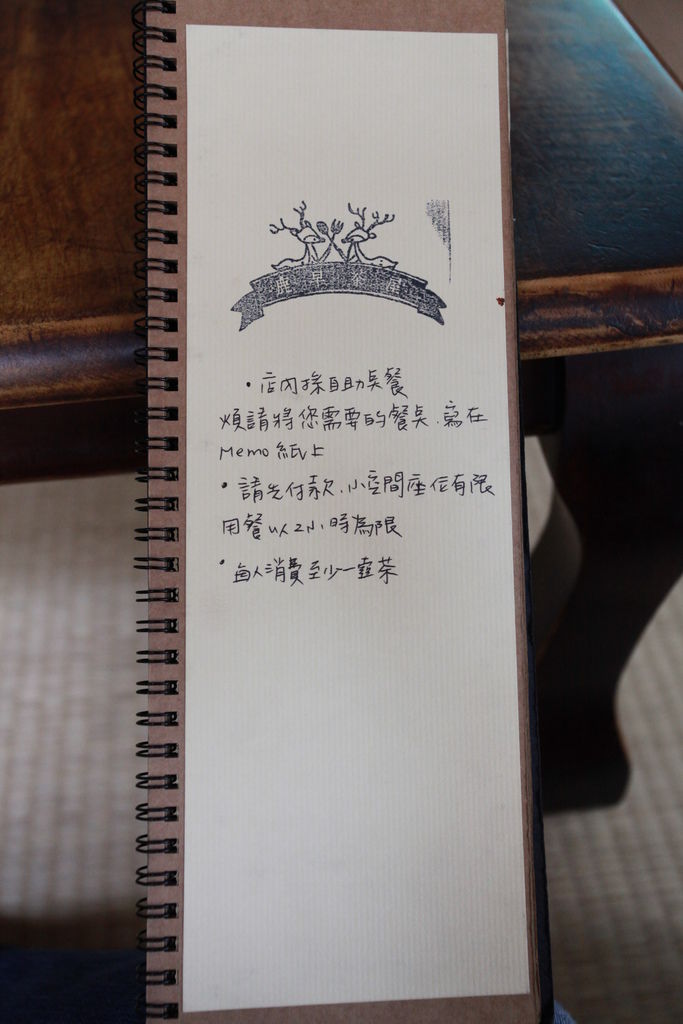 鹿早茶屋
• 店內採自助點餐
煩請將您需要的餐點.寫在
Memo 紙上
• 請先付款.小空間座位有限
用餐以2小時為限
• 每人消費至少一壺茶